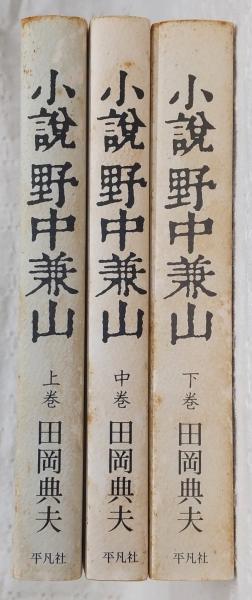 小說 野中兼山
上巻
田岡典夫
平凡社
小說 野中兼山
中巻
田岡典夫
平凡社
小說 野中兼山
下巻
田岡典夫
平凡社